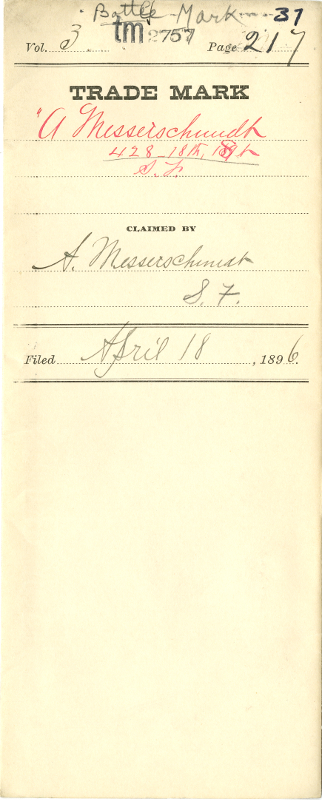 Bottle-Mark 37
Vol. 3 tm 2757 Page 217
TRADE MARK
"A Messerschmidt
428-18th, St
S.F.
CLAIMED BY
A. Messerschmidt
S. F.
Filed April 18, 1896.